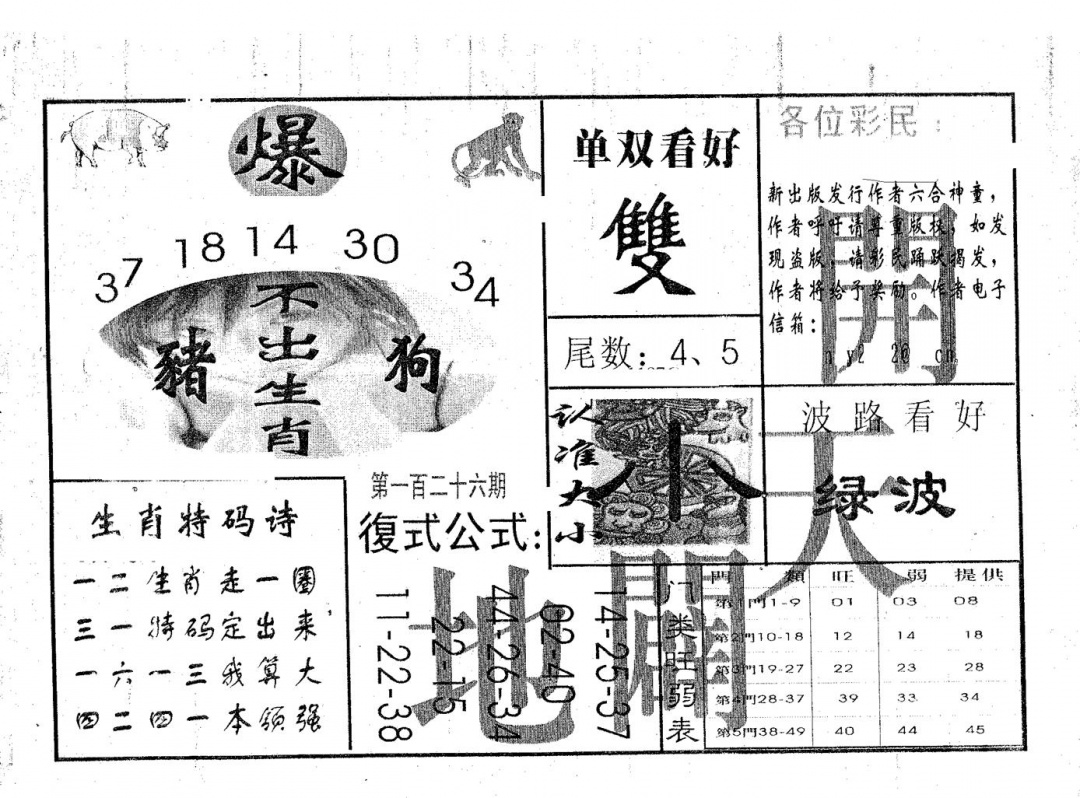 爆
37 18 14 30 34
不出生肖
豬
狗
单双看好
雙
尾数：4、5
各位彩民：
新出版发行作者六合神童，
作者呼吁请尊重版权，如发
现盗版，请彩民踊跃揭发，
作者将给予奖励。作者电子
信箱：
開
认准大小
小
波路看好
绿波
天
生肖特码诗
一二生肖走一圈
三一特码定出来，
一六一三我算大
四二四一本领强
第一百二十六期
復式公式：
14-25-37
02-40
44-26-34
22-15
11-22-38
地
闢
门类旺弱表
門類 旺 弱 提供
第1門1-9 01 03 08
第2門10-18 12 14 18
第3門19-27 22 23 28
第4門28-37 39 33 34
第5門38-49 40 44 45